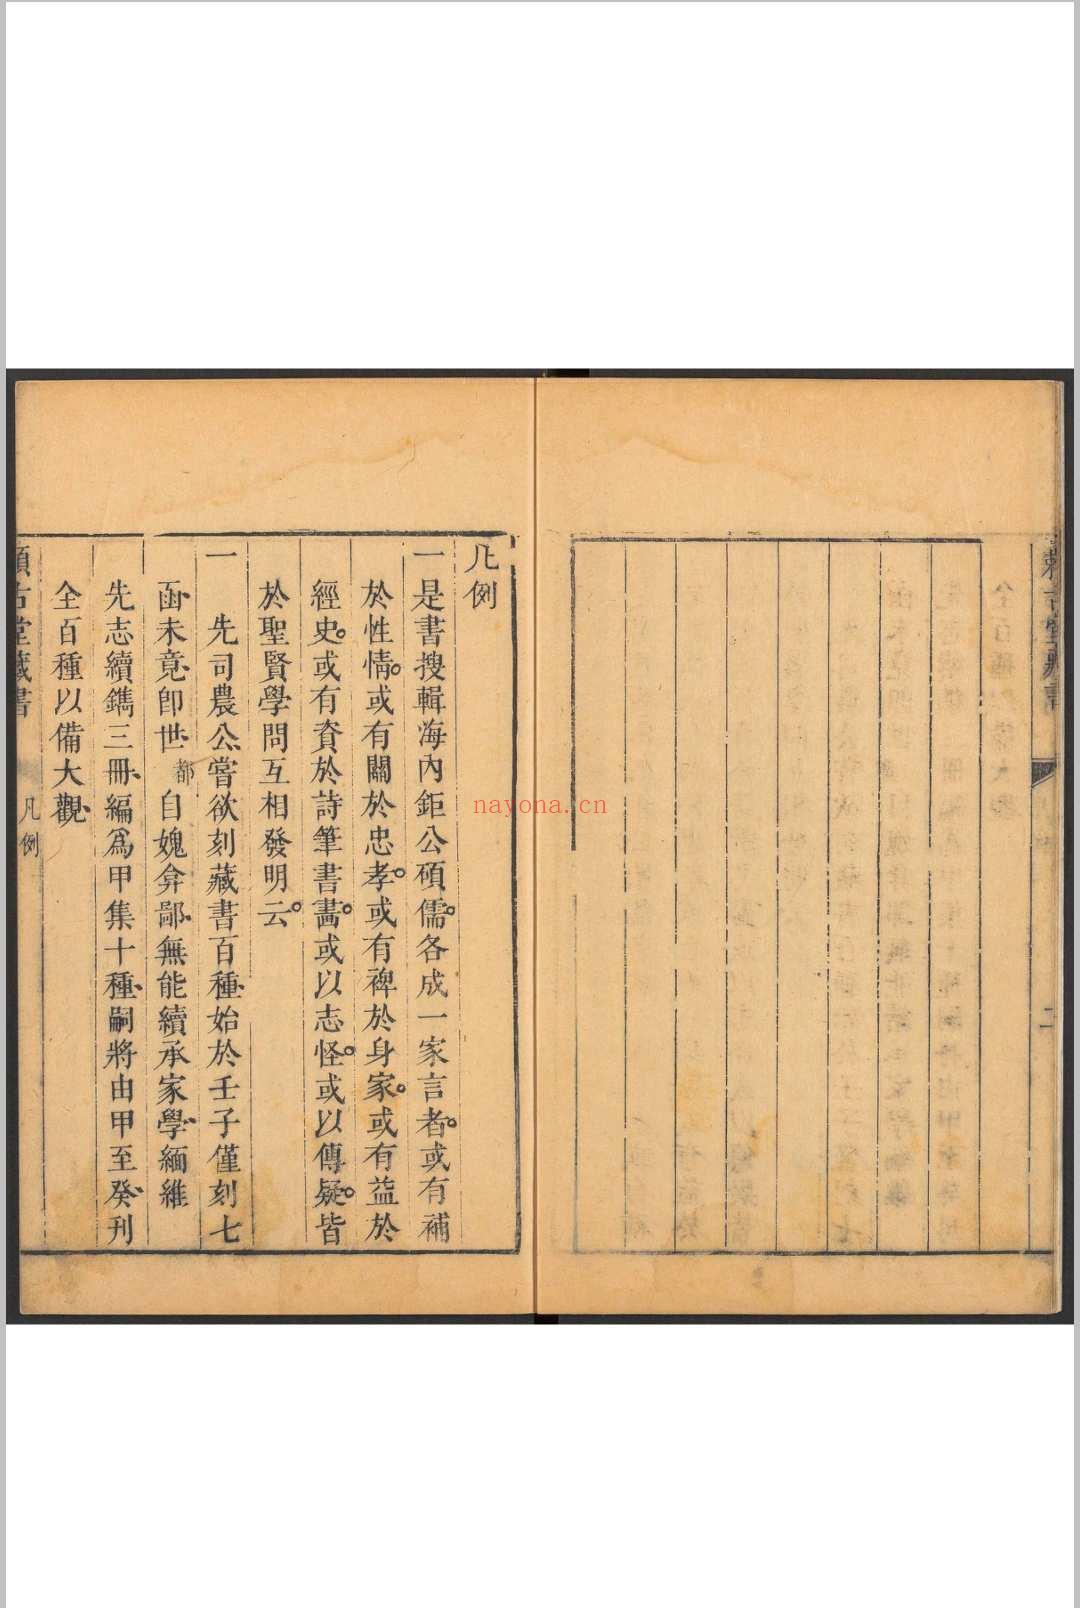 二
凡例
一是書搜輯海內鉅公碩儒。各成一家言者。或有補
於性情。或有關於忠孝。或有裨於身家。或有益於
經史。或有資於詩筆書畵。或以志怪。或以傳疑。皆
於聖賢學問互相發明云。
一　先司農公嘗欲刻藏書百種、始於壬子僅刻七
函、未竟、卽世、都自媿弇鄙、無能續承家學、緬維
先志續鐫三冊、編爲甲集十種、嗣將由甲至癸、刊
全百種以備大觀、
賴古堂藏書
凡例
nayona.cn